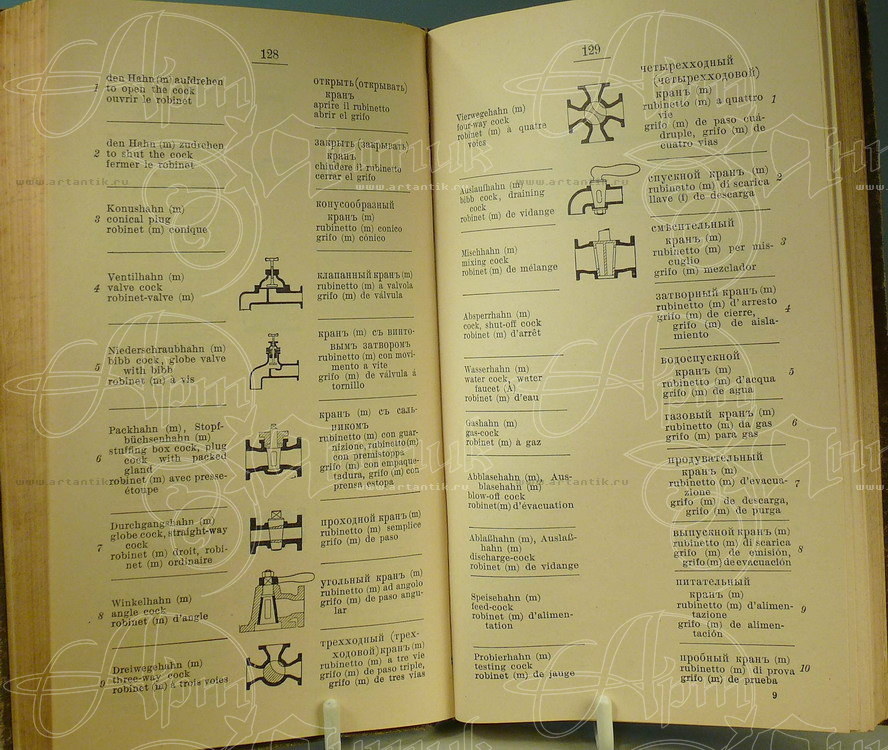 128
1 den Hahn (m) aufdrehen
to open the cock
ouvrir le robinet
открыть (открывать)
кранъ
aprire il rubinetto
abrir el grifo
2 den Hahn (m) zudrehen
to shut the cock
fermer le robinet
закрыть (закрывать)
кранъ
chiudere il rubinetto
cerrar el grifo
3 Konushahn (m)
conical plug
robinet (m) conique
конусообразный
кранъ (m)
rubinetto (m) conico
grifo (m) cónico
4 Ventilhahn (m)
valve cock
robinet-valve (m)
клапанный кранъ (m)
rubinetto (m) a valvola
grifo (m) de válvula
5 Niederschraubhahn (m)
bibb cock, globe valve
with bibb
robinet (m) à vis
кранъ (m) съ винто-
вымъ затворомъ
rubinetto (m) con movi-
mento a vite
grifo (m) de válvula á
tornillo
6 Packhahn (m), Stopf-
büchsenhahn (m)
stuffing box cock, plug
cock with packed
gland
robinet (m) avec presse-
étoupe
кранъ (m) съ саль-
никомъ
rubinetto (m) con guar-
nizione, rubinetto (m)
con premistoppa
grifo (m) con empaque-
tadura, grifo (m) con
prensa estopa
7 Durchgangshahn (m)
globe cock, straight-way
cock
robinet (m) droit, robi-
net (m) ordinaire
проходной кранъ (m)
rubinetto (m) semplice
grifo (m) de paso
8 Winkelhahn (m)
angle cock
robinet (m) d'angle
угольный кранъ (m)
rubinetto (m) ad angolo
grifo (m) de paso angu-
lar
9 Dreiwegehahn (m)
three-way cock
robinet (m) à trois voies
трехходный (трех-
ходовой) кранъ (m)
rubinetto (m) a tre vie
grifo (m) de paso triple,
grifo (m) de tres vias
129
Vierwegehahn (m)
four-way cock
robinet (m) à quatre
voies
четырехходный
(четырехходовой)
кранъ (m)
rubinetto (m) a quattro
vie
grifo (m) de paso cuá-
druple, grifo (m) de
cuatro vias
1
Auslaufhahn (m)
bibb cock, draining
cock
robinet (m) de vidange
спускной кранъ (m)
rubinetto (m) di scarica
llave (f) de descarga
2
Mischhahn (m)
mixing cock
robinet (m) de mélange
смѣсительный
кранъ (m)
rubinetto (m) per mis-
cuglio
grifo (m) mezclador
3
Absperrhahn (m)
cock, shut-off cock
robinet (m) d'arrêt
затворный кранъ (m)
rubinetto (m) d'arresto
grifo (m) de cierre,
grifo (m) de aisla-
miento
4
Wasserhahn (m)
water cock, water
faucet (A)
robinet (m) d'eau
водоспускной
кранъ (m)
rubinetto (m) d'acqua
grifo (m) de agua
5
Gashahn (m)
gas-cock
robinet (m) à gaz
газовый кранъ (m)
rubinetto (m) da gas
grifo (m) para gas
6
Abblasehahn (m), Aus-
blasehahn (m)
blow-off cock
robinet (m) d'évacuation
продувательный
кранъ (m)
rubinetto (m) d'evacua-
zione
grifo (m) de descarga,
grifo (m) de purga
7
Ablaßhahn (m), Auslaß-
hahn (m)
discharge-cock
robinet (m) de vidange
выпускной кранъ (m)
rubinetto (m) di scarica
grifo (m) de emisión,
grifo (m) de evacuación
8
Speisehahn (m)
feed-cock
robinet (m) d'alimen-
tation
питательный
кранъ (m)
rubinetto (m) d'alimen-
tazione
grifo (m) de alimen-
tación
9
Probierhahn (m)
testing cock
robinet (m) de jauge
пробный кранъ (m)
rubinetto (m) di prova
grifo (m) de prueba
10
9
www.artantik.ru